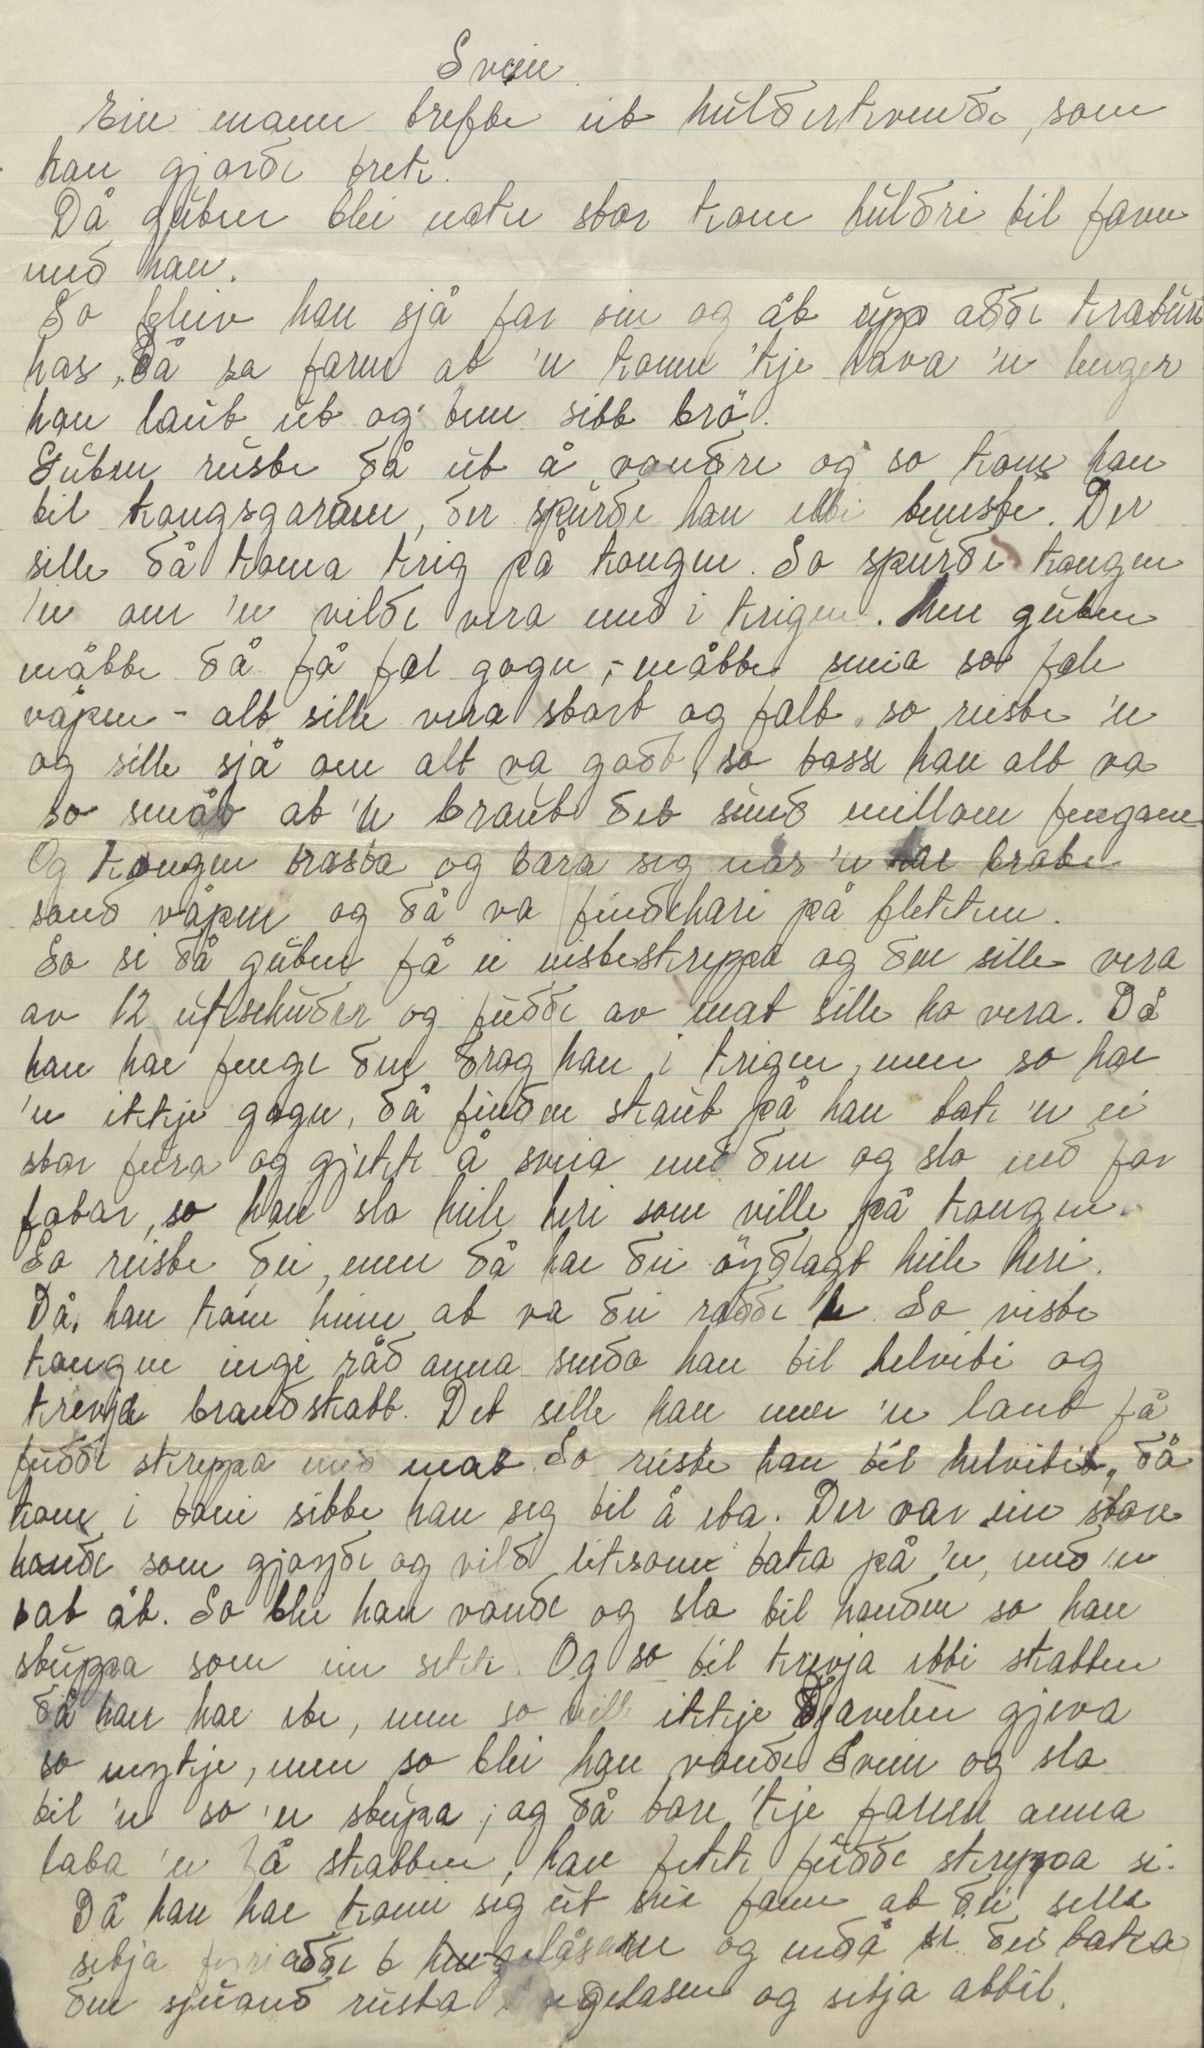 Svein
Ein mann trefte eit huldrekvende, som
han gjorde trek.
Då guten blei nøke stor kom huldri til faren
med han.
So bleiv han sjå far sin og åt upp adde kraturi
has, då sa faren at 'n konn 'kje hava 'n lenger
han laut ut og tene sitt brø.
Guten reiste då ut å vandre og so kom han
til kongsgarden, der spurde han etti teneste. Der
sille då koma krig på kongen. So spurde kongen
'n om 'n vilde vera med i krigen. Men guten
måtte då få fæl gogn, – måtte smia so fæle
våpen – alt sille vera stort og fælt, so reiste 'n
og sille sjå om alt va godt, so tasse han alt va
so smått at 'n braut det sund millom fingane
Og kongen trassa og bara seg når 'n hae brote
sond våpen og då va fiendehæri på flekken.
So se då guten få ei nistesreppa og den sille vera
av 12 uksehuder og fudde av mat sille ho vera. Då
han hae fenge den drog han i krigen, men so hae
'n ikkje gogn, då fienden skaut på han tok 'n ei
stor fura og gjekk å sveia med den og slo ned for
fotar, so han slo heile heri som ville på kongen.
So reiste dei, men då hae dei øydlagt heile heri.
Då han kom heim at va dei rædde So visste
kongen inge råd anna senda han til helviti og
krevja brandskatt. Det sille han men 'n laut få
fudde skreppa med mat. So reiste han til helvitis, då
kom i tomi sitte han seg til å eta. Der var ein stor
hunde som gjøydde og vild liksom taka på 'n, med 'n
sat åt. So blei han vonde og slo til hunden so han
stuppa som ein sekk. Og so til krevja etti skatten
då han hae ete, men so ville ikkje Djævelen gjeva
so mykje, men so blei han vonde Svein og slo
til 'n so 'n stupa; og då tore 'kje faenen anna
lata 'n få skatten, han fekk fudde skreppa si.
Då han hae komi seg ut sae faen at dei sille
setja fyri adde 6 hengelåsane og nedå se dei taka
den sjuand rusta hengelasen og setja attil.